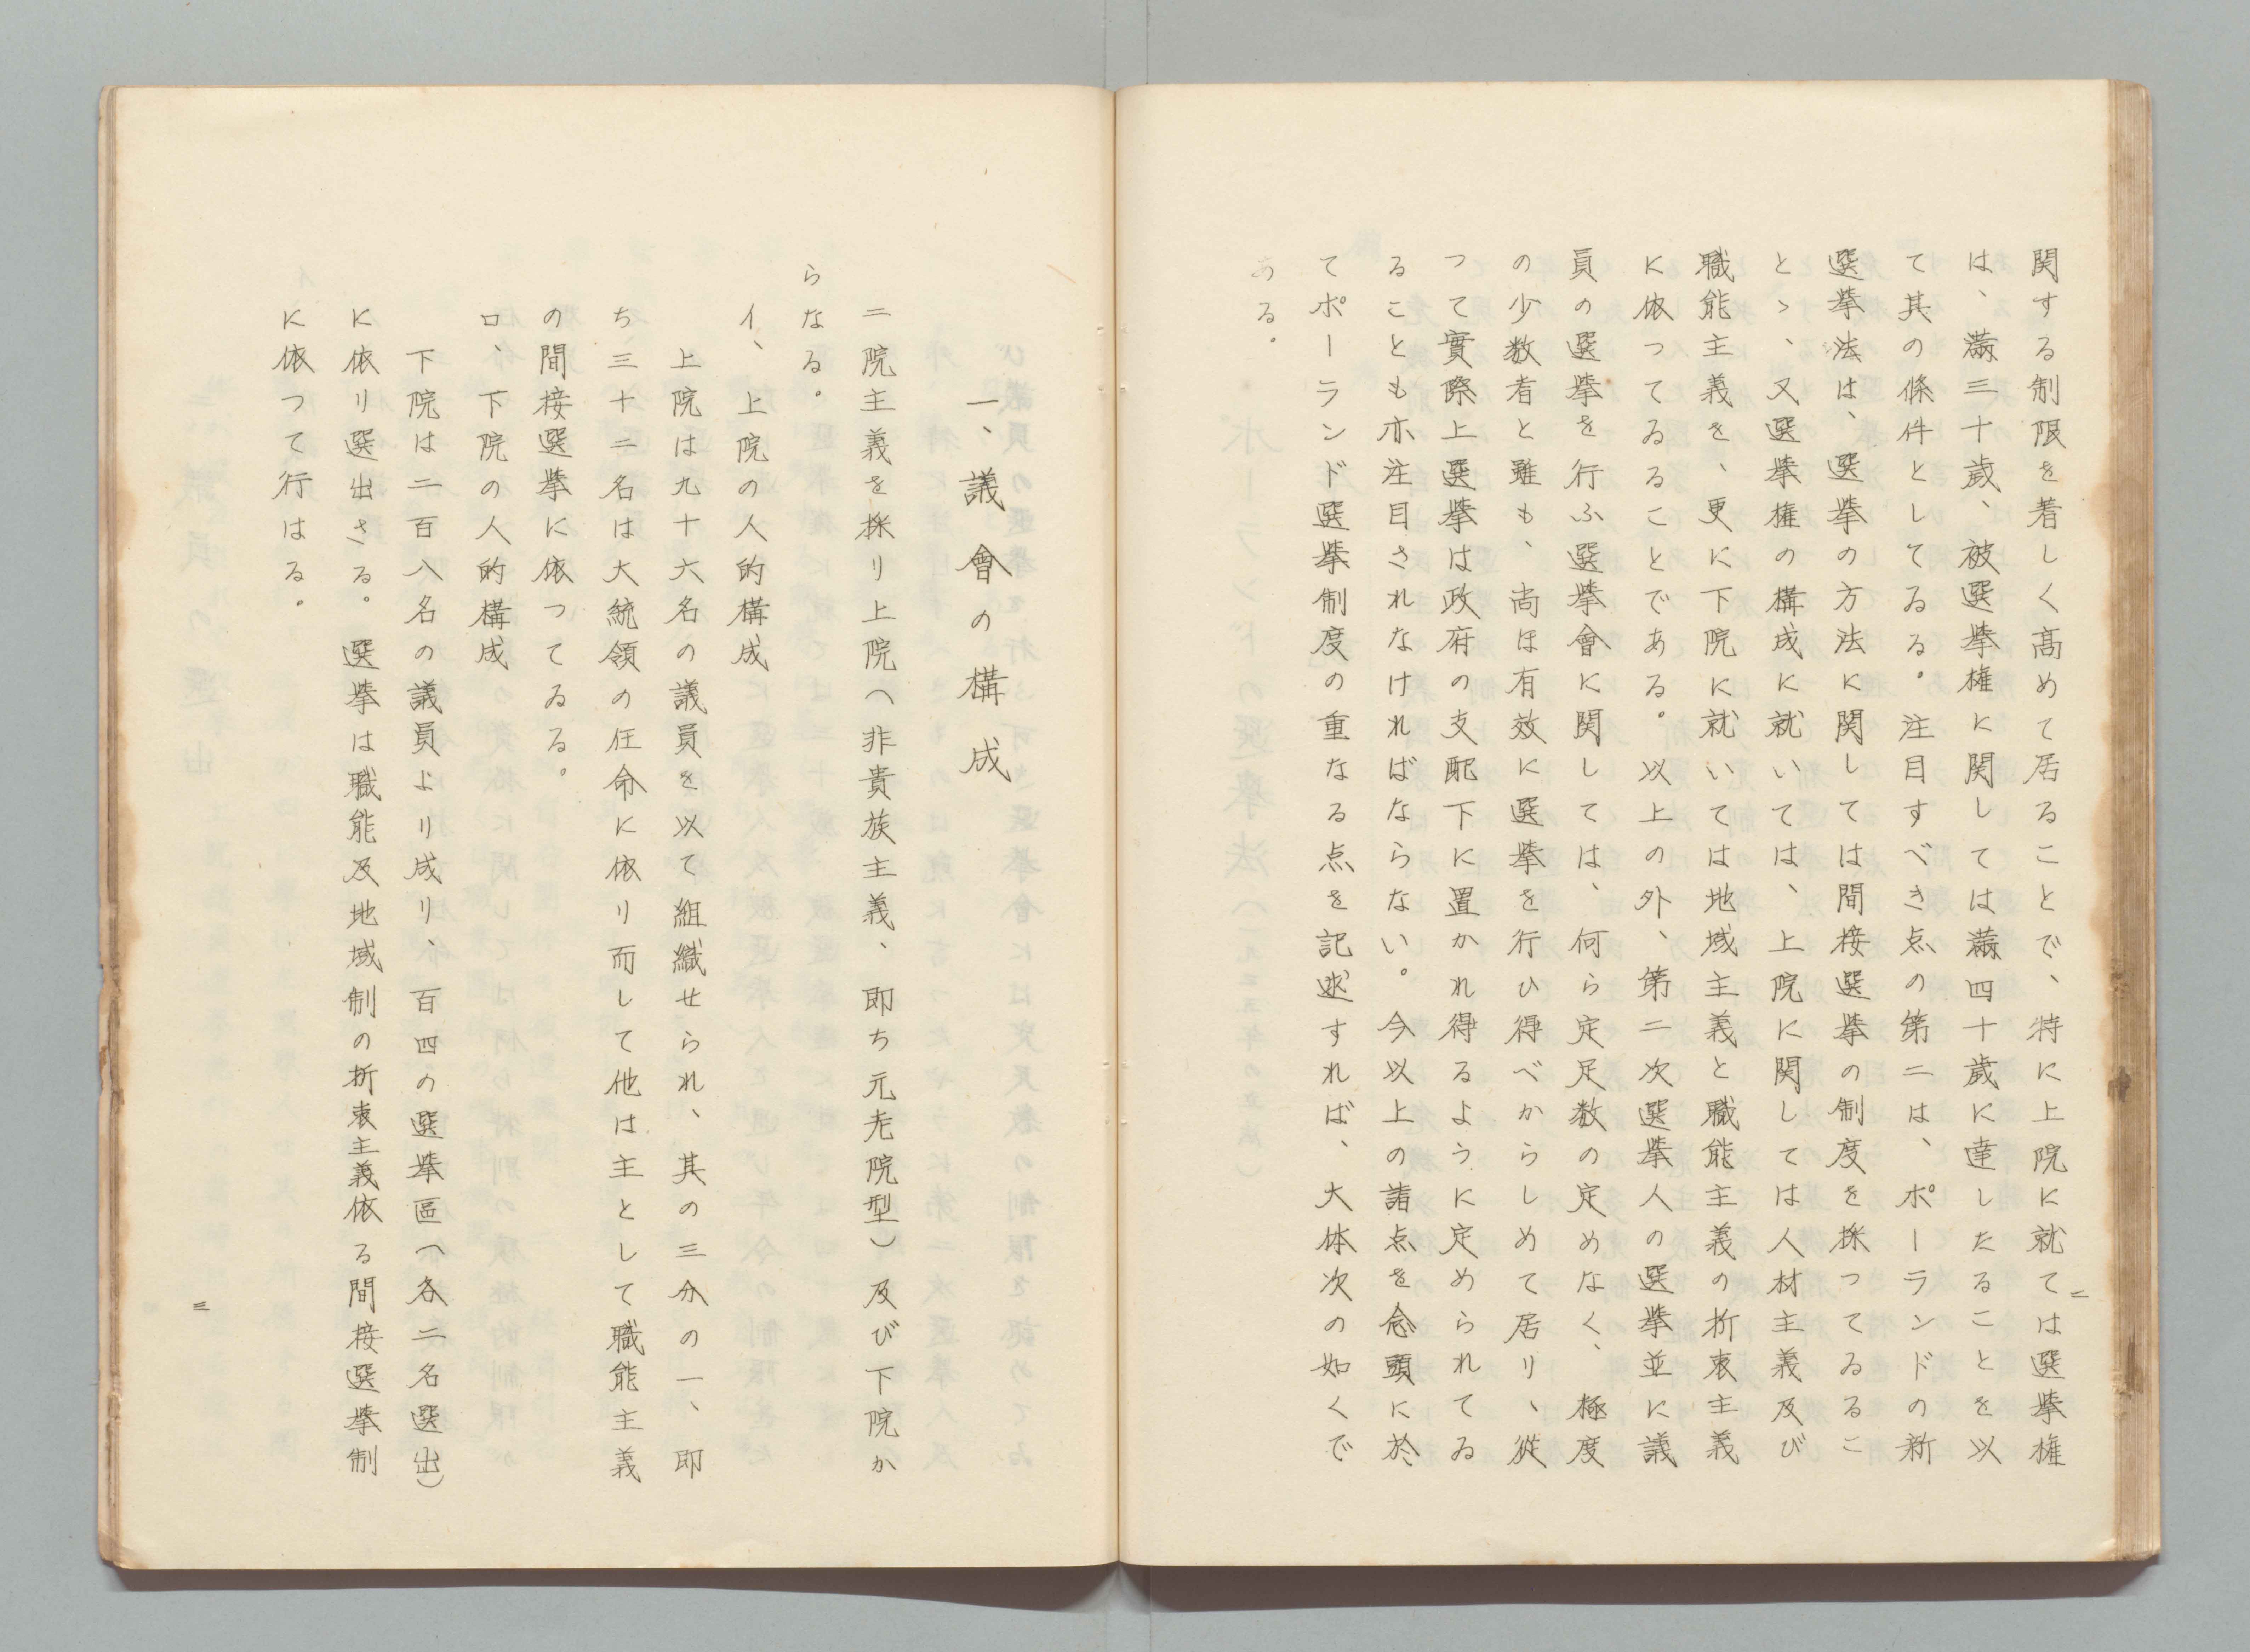 関する制限を着しく高めて居ることで、特に上院に就ては選挙権
は、満三十歳、被選挙権に関しては満四十歳に達したることを以
て其の條件としてゐる。注目すべき点の第二は、ポーランドの新
選挙法は、選挙の方法に関しては間接選挙の制度を採つてゐるこ
とゝ、又選挙権の構成に就いては、上院に関しては人材主義及び
職能主義を、更に下院に就いては地域主義と職能主義の折衷主義
に依つてゐることである。以上の外、第二次選挙人の選挙並に議
員の選挙を行ふ選挙會に関しては、何ら定足数の定めなく、極度
の少数者と雖も、尚ほ有效に選挙を行ひ得べからしめて居り、従
つて實際上選挙は政府の支配下に置かれ得るように定められてゐ
ることも亦注目されなければならない。今以上の諸点を念頭に於
てポーランド選挙制度の重なる点を記述すれば、大体次の如くで
ある。
二
一、議會の構成
二院主義を採り上院(非貴族主義、即ち元老院型)及び下院か
らなる。
イ、上院の人的構成
上院は九十六名の議員を以て組織せられ、其の三分の一、即
ち、三十二名は大統領の任命に依り而して他は主として職能主義
の間接選挙に依つてゐる。
ロ、下院の人的構成
下院は二百八名の議員より成り、百四の選挙區(各二名選出)
に依り選出さる。選挙は職能及地域制の折衷主義依る間接選挙制
に依つて行はる。
三